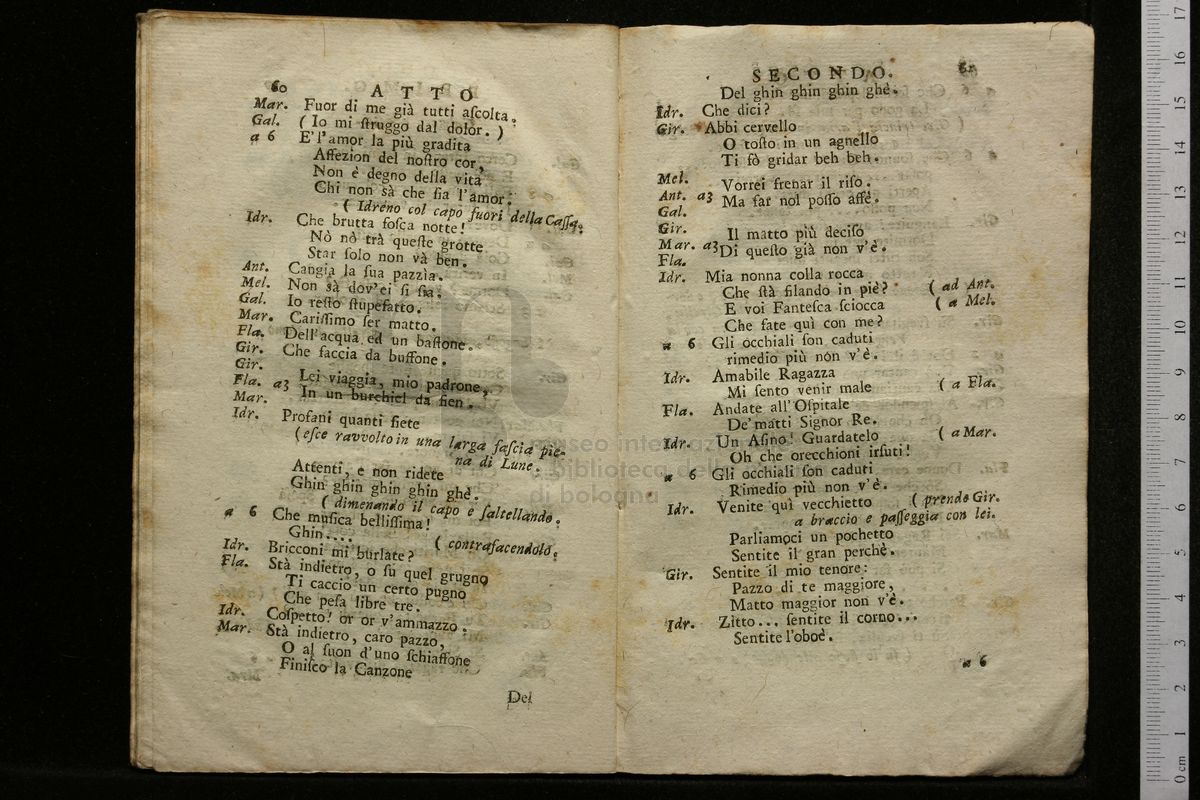 60 ATTO
Mar. Fuor di me già tutti aſcolta.
Gal. ( Io mi ſtruggo dal dolor. )
a 6 E'l'amor la più gradita
Affezion del noſtro cor,
Non è degno della vita
Chi non sà che ſia l'amor.
( Idreno col capo fuori della Caſſa.
Idr. Che brutta foſca notte!
Nò nò trà queſte grotte
Star ſolo non và ben.
Ant. Cangia la ſua pazzìa.
Mel. Non sà dov'ei ſi ſia.
Gal. Io reſto ſtupefatto.
Mar. Cariſſimo ſer matto.
Fla. Dell'acqua ed un baſtone.
Gir. Che faccia da buffone.
Gir.
Fla. a3 Lei viaggia, mio padrone,
Mar. In un burchiel da fien.
Idr. Profani quanti ſiete
( eſce ravvolto in una larga faſcia pie-
na di Lune.
Attenti, e non ridete
Ghin ghin ghin ghin ghè.
( dimenando il capo e ſaltellando.
a 6 Che muſica belliſſima!
Ghin.... ( contrafacendolo.
Idr. Bricconi mi burlate?
Fla. Stà indietro, o ſu quel grugno
Ti caccio un certo pugno
Che peſa libre tre.
Idr. Coſpetto! or or v'ammazzo.
Mar. Stà indietro, caro pazzo,
O al ſuon d'uno ſchiaffone
Finiſco la Canzone
Del
SECONDO. 61
Del ghin ghin ghin ghè.
Idr. Che dici?
Gir. Abbi cervello
O toſto in un agnello
Ti fò gridar beh beh.
Mel.
Ant. a3 Vorrei frenar il riſo.
Gal. Ma far nol poſſo affè.
Gir.
Mar. a3 Il matto più deciſo
Fla. Di queſto già non v'è.
Idr. Mia nonna colla rocca
Che ſtà filando in piè? ( ad Ant.
E voi Fanteſca ſciocca ( a Mel.
Che fate quì con me?
a 6 Gli occhiali ſon caduti
rimedio più non v'è.
Idr. Amabile Ragazza
Mi ſento venir male ( a Fla.
Fla. Andate all'Oſpitale
De'matti Signor Re.
Idr. Un Aſino! Guardatelo ( a Mar.
Oh che orecchioni irſuti!
a 6 Gli occhiali ſon caduti
Rimedio più non v'è.
Idr. Venite quì vecchietto ( prende Gir.
a braccio e paſſeggia con lei.
Parliamoci un pochetto
Sentite il gran perchè.
Gir. Sentite il mio tenore:
Pazzo di te maggiore,
Matto maggior non v'è.
Idr. Zitto... ſentite il corno...
Sentite l'oboè.
a 6